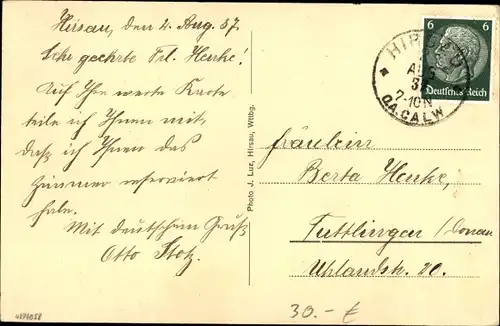 Hirsau, den 2. Aug. 37.
Sehr geehrte Frl. Henke!
Auf Ihre werte Karte
teile ich Ihnen mit,
daß ich Ihnen das
Zimmer reserviert
habe.
Mit deutschem Gruß,
Otto Stotz.
Photo J. Luz, Hirsau, Wittbg.
6 6
Deutsches Reich
HIRSAU
AUG
37
7-10N
O.A.CALW
Fräulein
Berta Henke,
Tuttlingen/Donau
Uhlandstr. 20.
30.- €